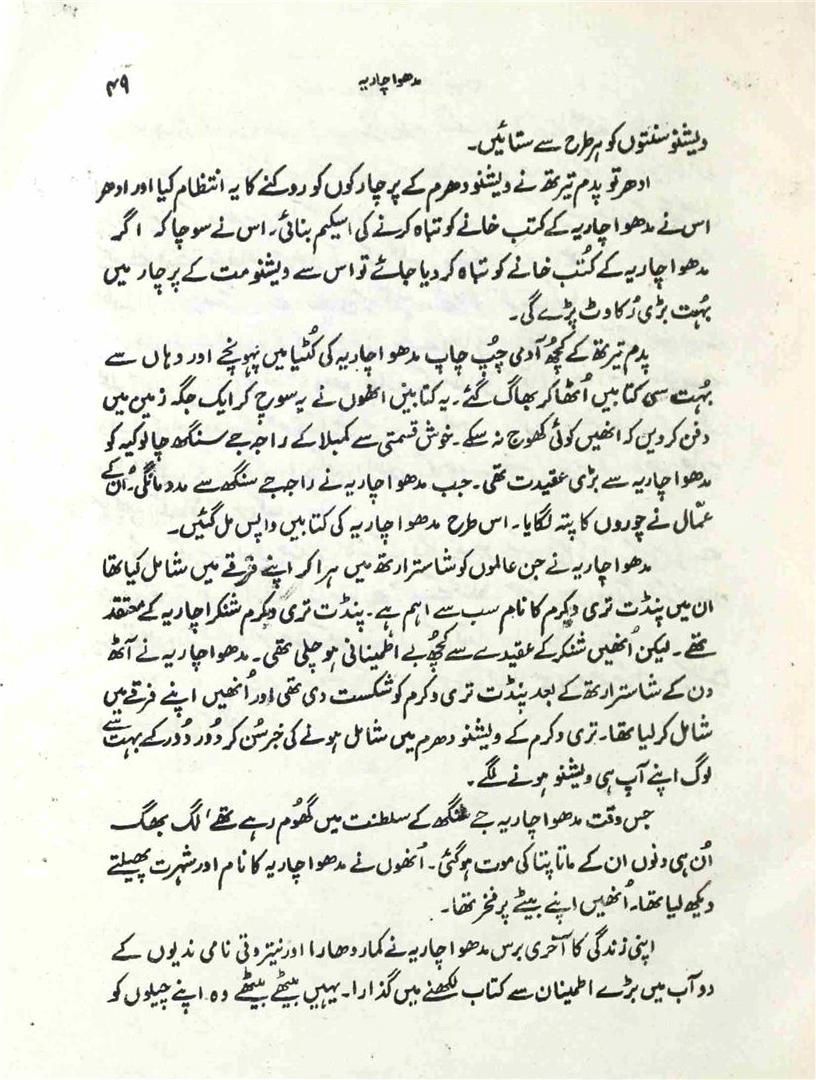 مدھوا چاریہ ۴۹
ویشنو سنتوں کو ہر طرح سے ستائیں۔
ادھر تو پدم تیرتھ نے ویشنو دھرم کے پرچارکوں کو روکنے کا یہ انتظام کیا اور ادھر
اس نے مدھوا چاریہ کے کتب خانے کو تباہ کرنے کی اسکیم بنائی۔ اس نے سوچا کہ اگر
مدھوا چاریہ کے کُتب خانے کو تباہ کر دیا جائے تو اس سے ویشنو مت کے پرچار میں
بہُت بڑی رُکاوٹ پڑے گی۔
پدم تیرتھ کے کچھُ آدمی چپُ چاپ مدھوا چاریہ کی کُٹیا میں پہونچے اور وہاں سے
بہُت سی کتابیں اُٹھا کر بھاگ گئے۔ یہ کتابیں انھوں نے یہ سوچ کر ایک جگہ زمین میں
دفن کر دیں کہ انھیں کوئی کھوج نہ سکے۔ خوش قسمتی سے کمبلا کے راجہ جے سنگھ چالوکیہ کو
مدھوا چاریہ سے بڑی عقیدت تھی۔ جب مدھوا چاریہ نے راجہ جے سنگھ سے مدد مانگی، اُن کے
عمّال نے چوروں کا پتہ لگایا۔ اس طرح مدھوا چاریہ کی کتابیں واپس مل گئیں۔
مدھوا چاریہ نے جن عالموں کو شاسترارتھ میں ہرا کر اپنے فرقے میں شامل کیا تھا
ان میں پنڈت تری وکرم کا نام سب سے اہم ہے۔ پنڈت تری وکرم شنکرا چاریہ کے معتقد
تھے۔ لیکن اُنھیں شنکر کے عقیدے سے کچھُ بے اطمینانی ہو چلی تھی۔ مدھوا چاریہ نے آٹھ
دن کے شاسترارتھ کے بعد پنڈت تری وکرم کو شکست دی تھی اور اُنھیں اپنے فرقے میں
شامل کر لیا تھا۔ تری وکرم کے ویشنو دھرم میں شامل ہونے کی خبر سُن کر دُور دُور کے بہت سے
لوگ اپنے آپ ہی ویشنو ہونے لگے۔
جس وقت مدھوا چاریہ جے سنگھ کے سلطنت میں گھوُم رہے تھے، لگ بھگ
اُن ہی دنوں ان کے ماتا پتا کی موت ہو گئی۔ اُنھوں نے مدھوا چاریہ کا نام اور شہرت پھیلتے
دیکھ لیا تھا۔ اُنھیں اپنے بیٹے پر فخر تھا۔
اپنی زندگی کا آخری برس مدھوا چاریہ نے کماردھارا اور نیتروتی نامی ندیوں کے
دوآب میں بڑے اطمینان سے کتاب لکھنے میں گذارا۔ یہیں بیٹھے بیٹھے وہ اپنے چیلوں کو